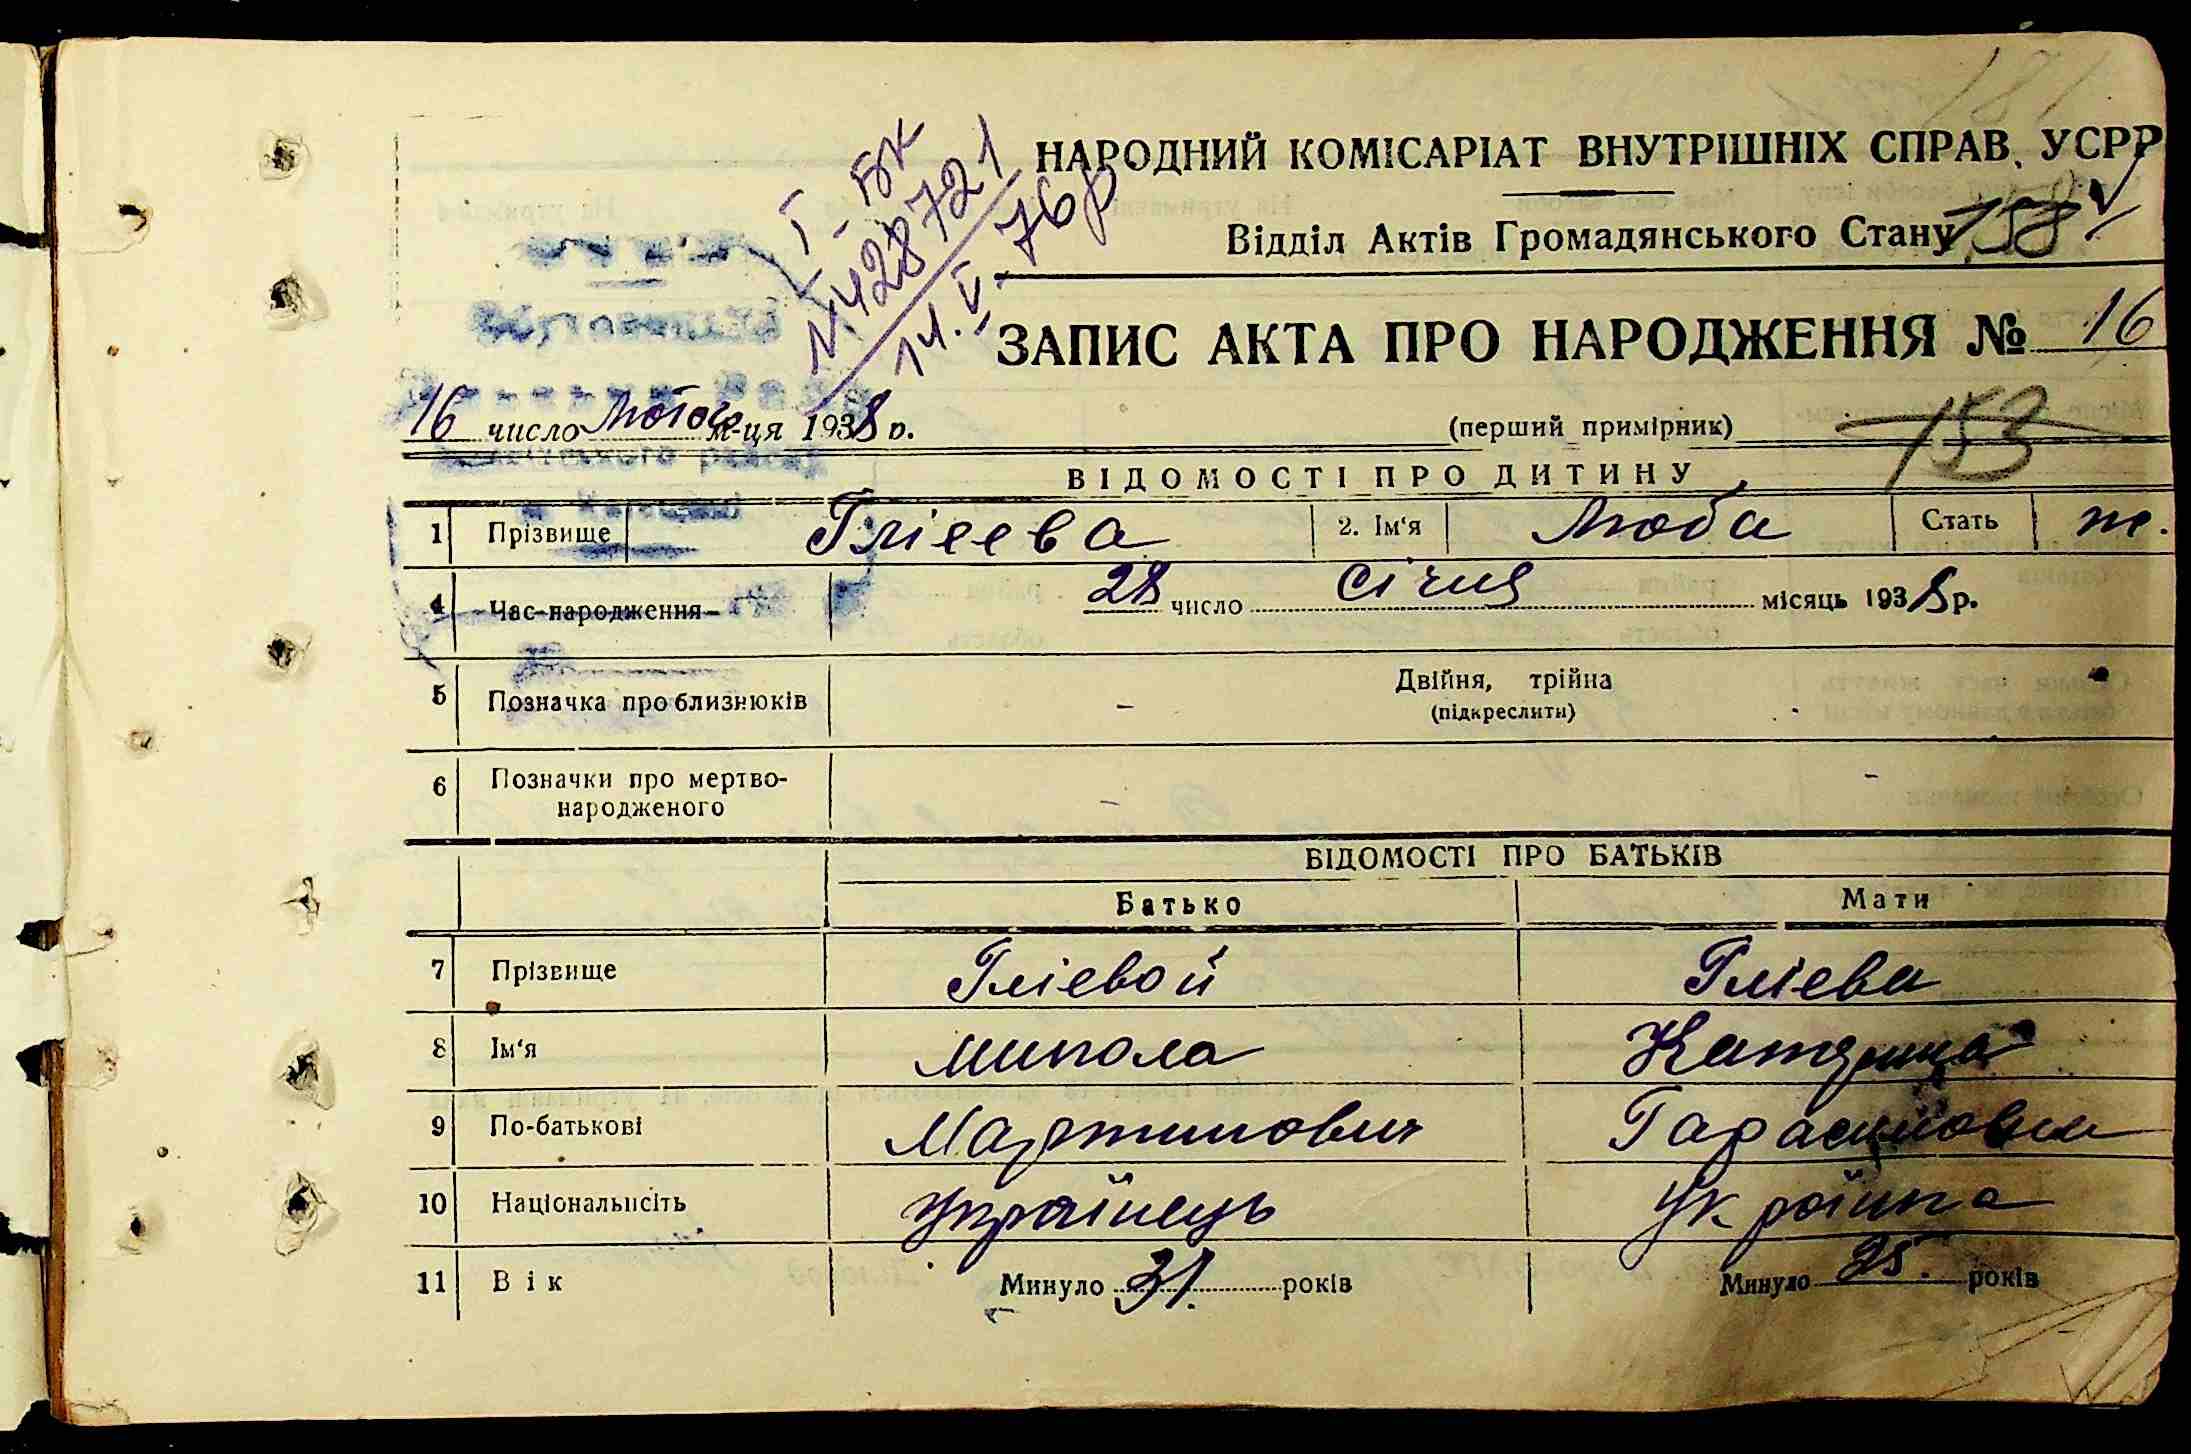 181
І-БК
№428721
11.V-76р
НАРОДНИЙ КОМІСАРІАТ ВНУТРІШНІХ СПРАВ, УСРР
Відділ Актів Громадянського Стану
ЗАПИС АКТА ПРО НАРОДЖЕННЯ № 16
16 число Лютого м-ця 1938 р.
(перший примірник) 153
району
ВІДОМОСТІ ПРО ДИТИНУ
1 Прізвище Глієєва 2. Ім'я Люба Стать ж.
4 Час народження 28 число січня місяць 1938 р.
5 Позначка про близнюків – Двійня, трійна
(підкреслити)
6 Позначки про мертво-
народженого – –
ВІДОМОСТІ ПРО БАТЬКІВ
Батько Мати
7 Прізвище Глієвой Глієва
8 Ім'я Микола Катерина
9 По-батькові Мартинович Гарасимовна
10 Національність Українець Українка
11 Вік Минуло 31. років Минуло 25. років